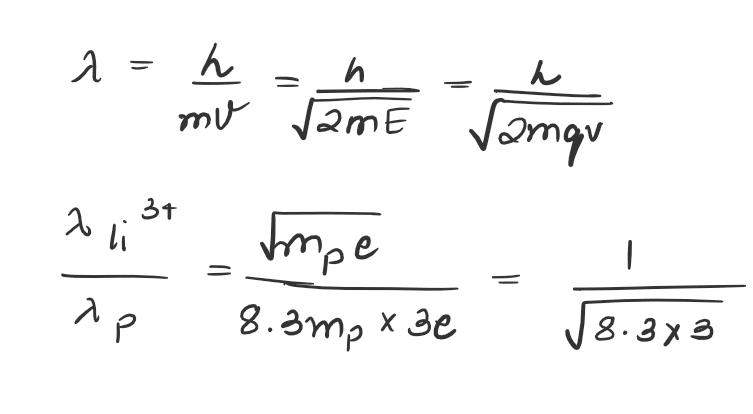 λ = h/mv = h/√(2mE) = h/√(2mqv)
λ li³⁺/λ p = √(m_p e)/(8.3m_p × 3e) = 1/√(8.3×3)